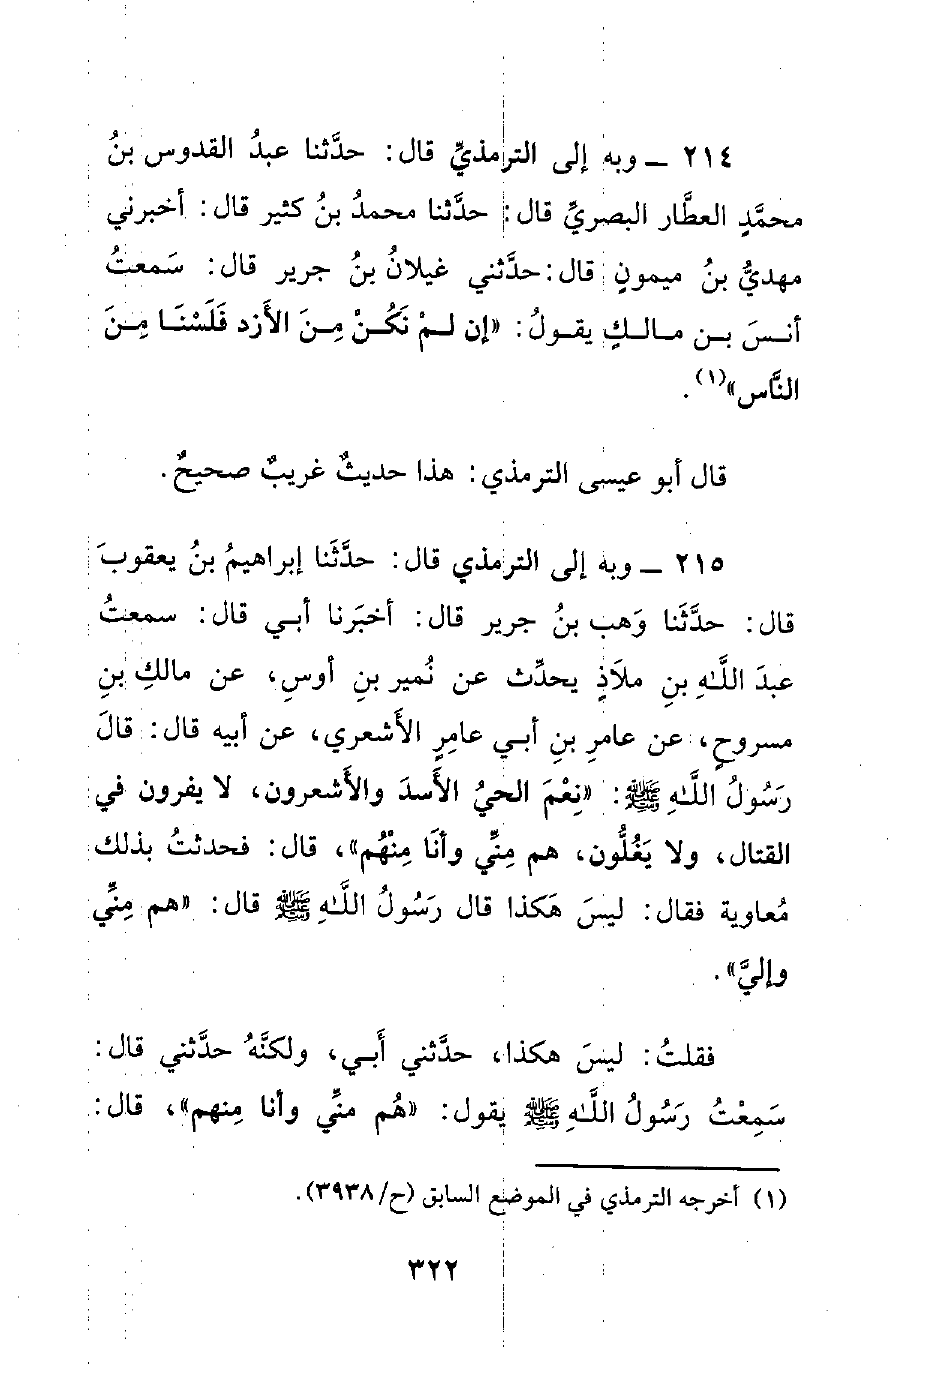 ٢١٤ ــ وبه إلى الترمذيِّ قال: حدَّثنا عبدُ القدوس بنُ
محمَّدٍ العطَّار البصريِّ قال: حدَّثنا محمدُ بنُ كثير قال: أخبرني
مهديُّ بنُ ميمونٍ قال: حدَّثني غيلانُ بنُ جرير قال: سَمعتُ
أنـسَ بـن مـالـكٍ يقـولُ: «إن لـمْ نَكُـنْ مِـنَ الأَزد فَلَسْنَـا مِـنَ
النَّاس»(١).
قال أبو عيسى الترمذي: هذا حديثٌ غريبٌ صحيحٌ.
٢١٥ ــ وبه إلى الترمذي قال: حدَّثَنا إبراهيمُ بنُ يعقوبَ
قال: حدَّثَنا وَهب بنُ جرير قال: أخبَرنا أبـي قال: سمعتُ
عبدَ اللَّهِ بنِ ملاَذٍ يحدِّث عن نُمير بنِ أوسِ، عن مالكِ بنِ
مسروحٍ، عن عامرِ بنِ أبـي عامِرٍ الأَشعري، عن أبيه قال: قالَ
رَسُولُ اللَّهِ ﷺ: «نِعْمَ الحيُ الأَسدَ والأَشعرون، لا يفرون في
القتال، ولا يَغُلُّون، هم مِنِّي وأنَا مِنْهُم»، قال: فحدثتُ بذلك
مُعاوية فقال: ليسَ هَكذا قال رَسُولُ اللَّهِ ﷺ قال: «هم مِنِّي
وإليَّ».
فقلتُ: ليسَ هكذا، حدَّثني أَبـي، ولكنَّهُ حدَّثني قال:
سَمِعْتُ رَسُولُ اللَّهِ ﷺ يقول: «هُم منِّي وأنا مِنهم»، قال:
(١) أخرجه الترمذي في الموضع السابق (ح/٣٩٣٨).
٣٢٢